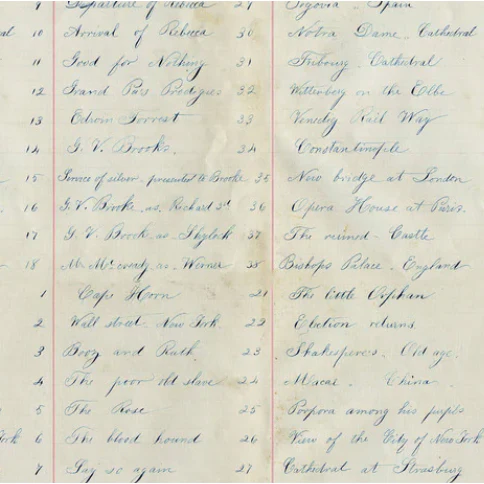 9 Departure of Rebecca 29 Segovia .. Spain
al 10 Arrival of Rebecca 30 Notra Dame. Cathedral
11 Good for Nothing 31 Fribourg. Cathedral
12 Grand Pa's Prodigies 32 Wittenberg on the Elbe
13 Edwin Forrest 33 Rail Way
14 G. V. Brooke. 34 Constantinople
15 Service of silver. presented to Brooke 35 New bridge at London
16 G. V. Brooke. as. Richard 3rd 36 Opera House at Paris.
17 G. V. Brook as Shylock 37 The ruined - Castle
18 Mr. McCready as. Werner 38 Bishops Palace. England
1 Cape Horn 21 The little Orphan
2 Wall street. New York. 22 Election returns.
3 Booz and Ruth 23 Shakesperes. Old age.
4 The poor old slave 24 Macao. China
5 The Rose 25 Porpora among his pupils
York 6 The blood hound 26 View of the City of New York
7 Say so again 27 Cathedral at Strasburg